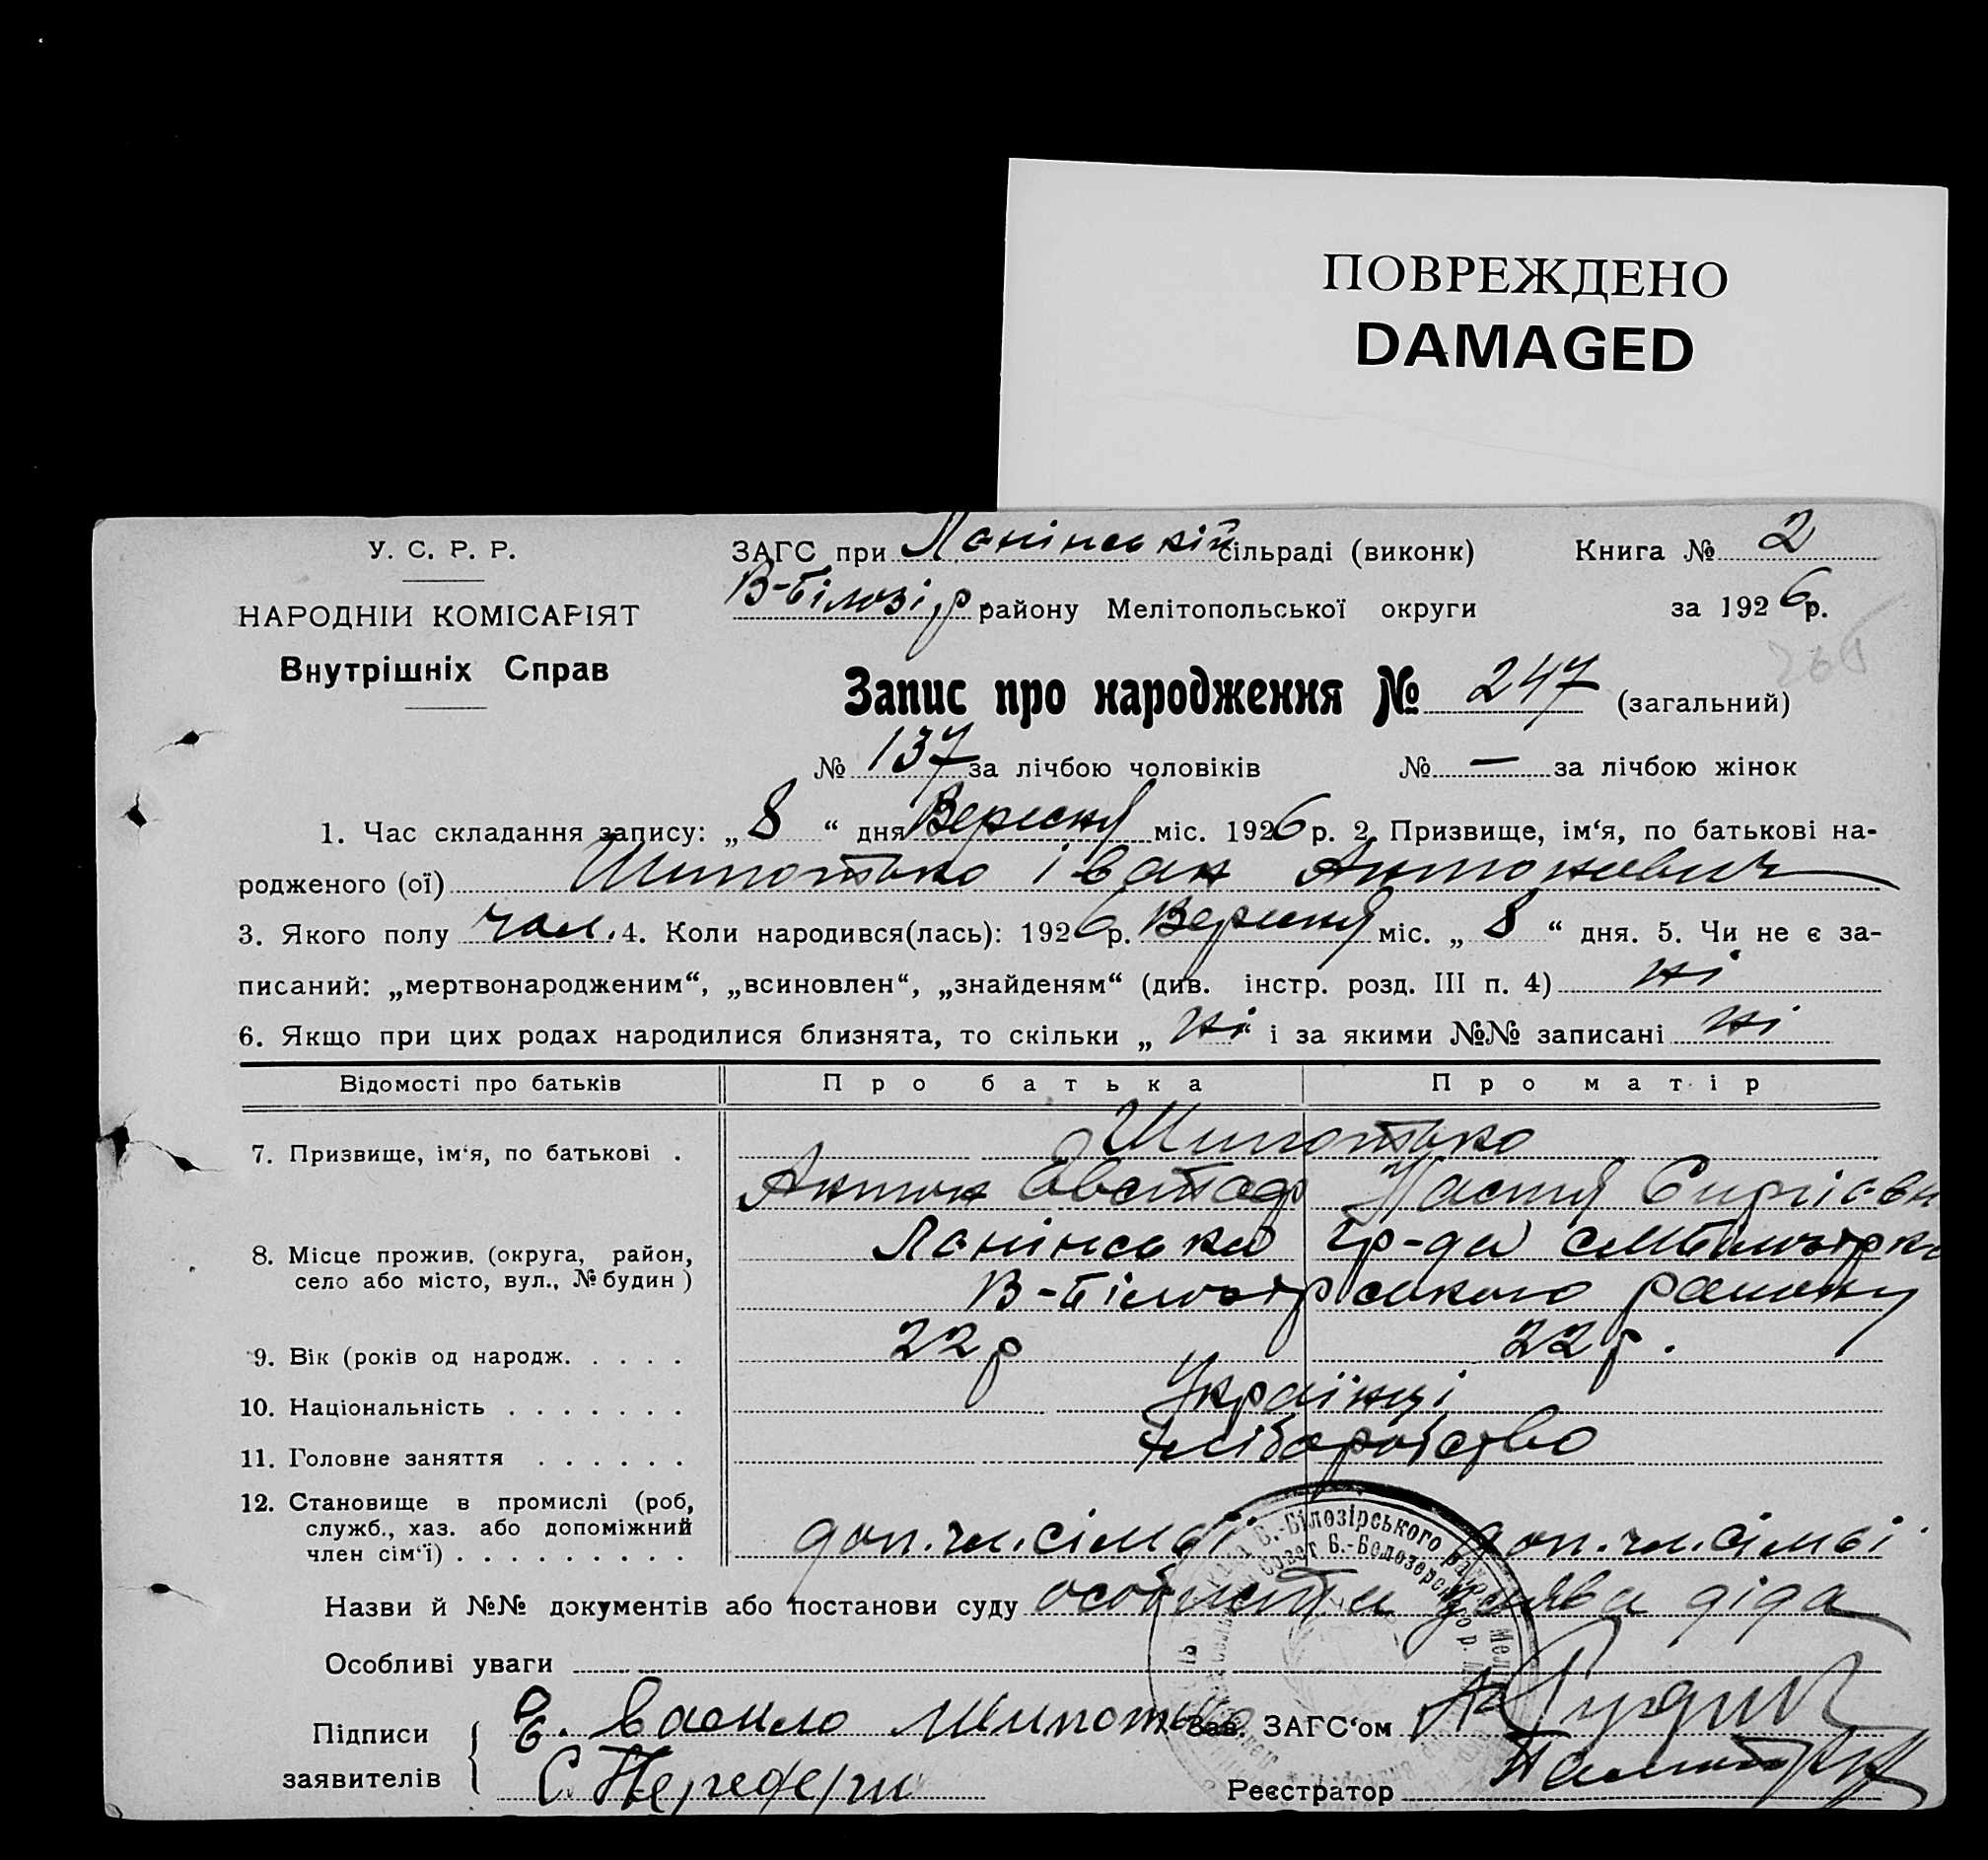 ПОВРЕЖДЕНО
DAMAGED
У. С. Р. Р.
НАРОДНІИ КОМІСАРІЯТ
Внутрішніх Справ
ЗАГС при Лонінській сільраді (виконк)
Книга № 2
В-Білозір. району Мелітопольської округи
за 1926 р.
Запис про народження № 247 (загальний)
№ 137 за лічбою чоловіків № — за лічбою жінок
1. Час складання запису: „ 8 “ дня Вересня міс. 1926 р. 2. Призвище, ім‘я, по батькові на-
родженого (ої) Шипотько Іван Антонович
3. Якого полу чол. 4. Коли народився(лась): 1926 р. Вересня міс. „ 8 “ дня. 5. Чи не є за-
писаний: „мертвонародженим“, „всиновлен“, „знайденям“ (див. інстр. розд. III п. 4) Ні
6. Якщо при цих родах народилися близнята, то скільки „ Ні і за якими №№ записані Ні
Відомості про батьків Про батька Про матір
7. Призвище, ім‘я, по батькові . Шипотько
Антон Євстаф Настя
8. Місце прожив. (округа, район, Лонінська гр-да
село або місто, вул., № будин) В-Білозірського району
9. Вік (років од народж. . . . . 22 р 22 р.
10. Національність . . . . . . . Українці
11. Головне заняття . . . . . . Хліборобство
12. Становище в промислі (роб,
служб., хаз. або допоміжний
член сім‘ї) . . . . . . . . . . доп. чл. сімьї доп. чл. сімьі
Назви й №№ документів або постанови суду особиста заява діда
Особливі уваги
Підписи
заявителів
Васило Шипотько
Зав. ЗАГС‘ом
Реєстратор